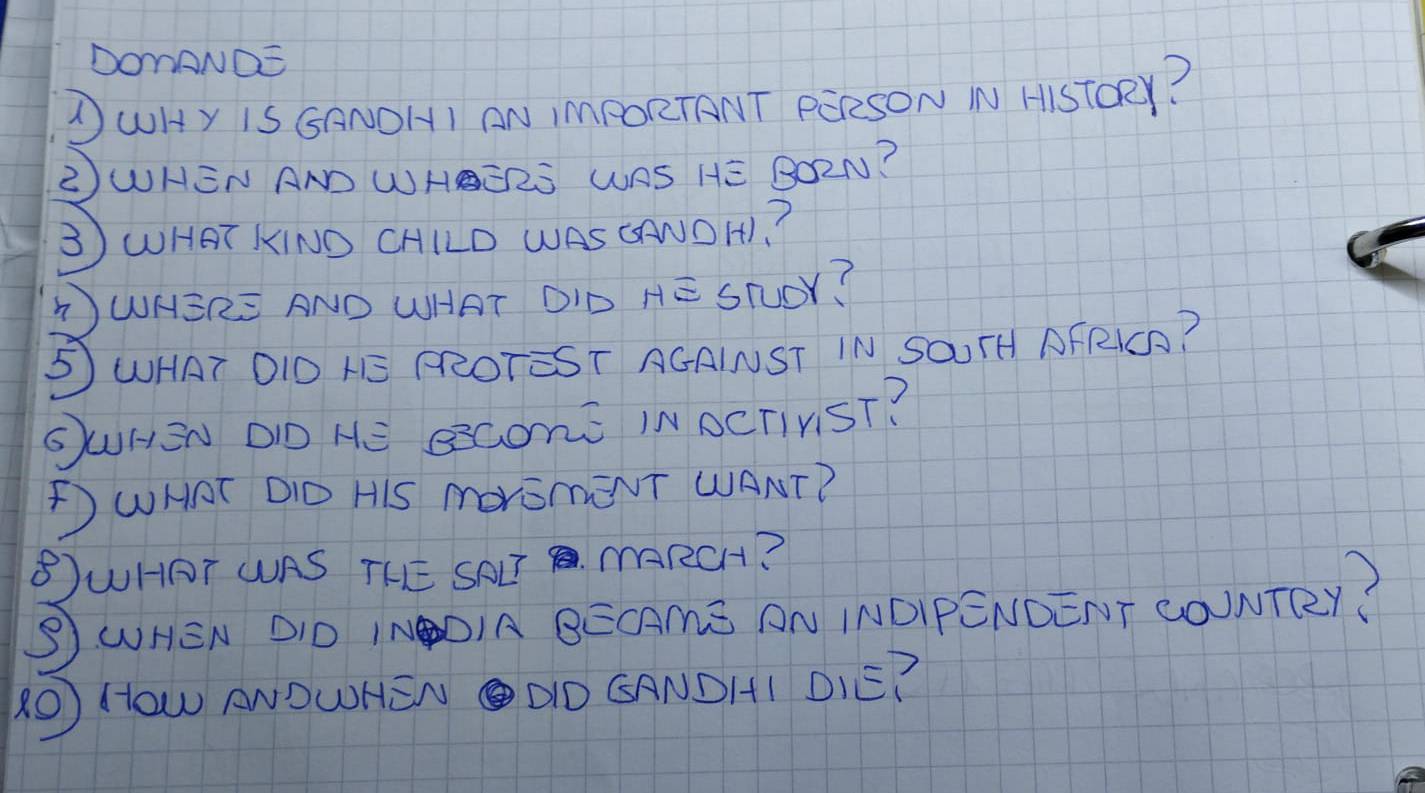 DOMANDE
1) WHY IS GANDHI AN IMPORTANT PERSON IN HISTORY?
2) WHEN AND WHERE WAS HE BORN?
3) WHAT KIND CHILD WAS GANDHI?
4) WHERE AND WHAT DID HE STUDY?
5) WHAT DID HE PROTEST AGAINST IN SOUTH AFRICA?
6) WHEN DID HE BECOME IN ACTIVIST?
7) WHAT DID HIS MOVEMENT WANT?
8) WHAT WAS THE SALT MARCH?
9) WHEN DID INDIA BECAME AN INDIPENDENT COUNTRY?
10) HOW AND WHEN DID GANDHI DIE?